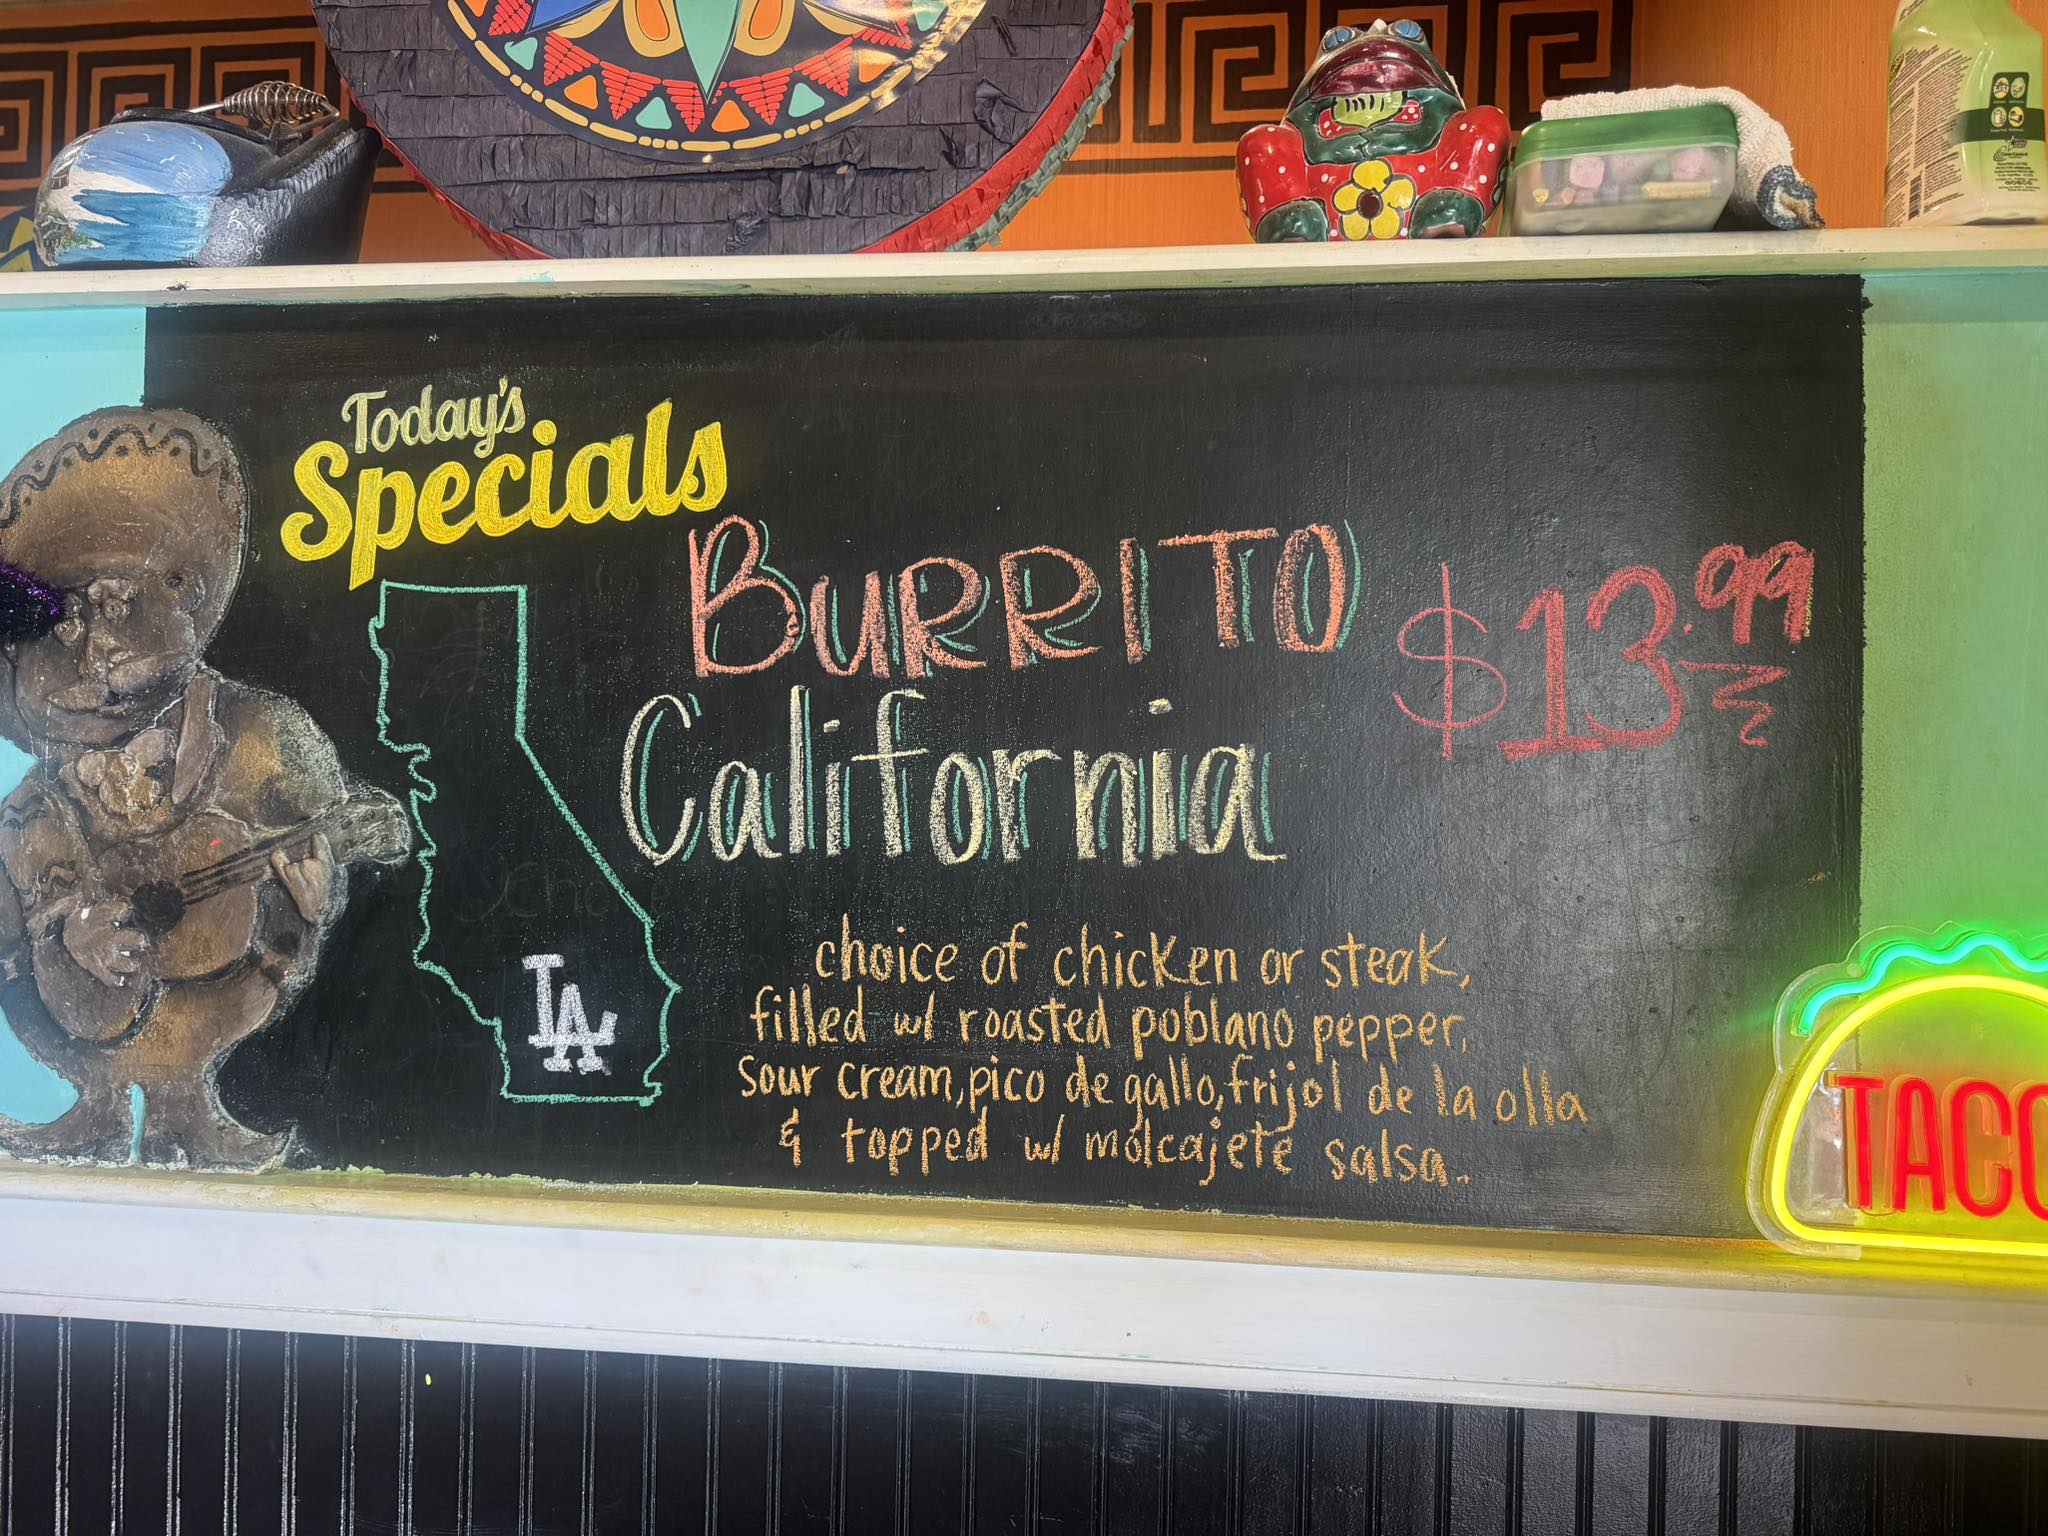 Today's
Specials
BURRITO
$13.99
California
LA
choice of chicken or steak,
filled w/ roasted poblano pepper,
sour cream, pico de gallo, frijol de la olla
& topped w/ molcajete salsa.
TACO